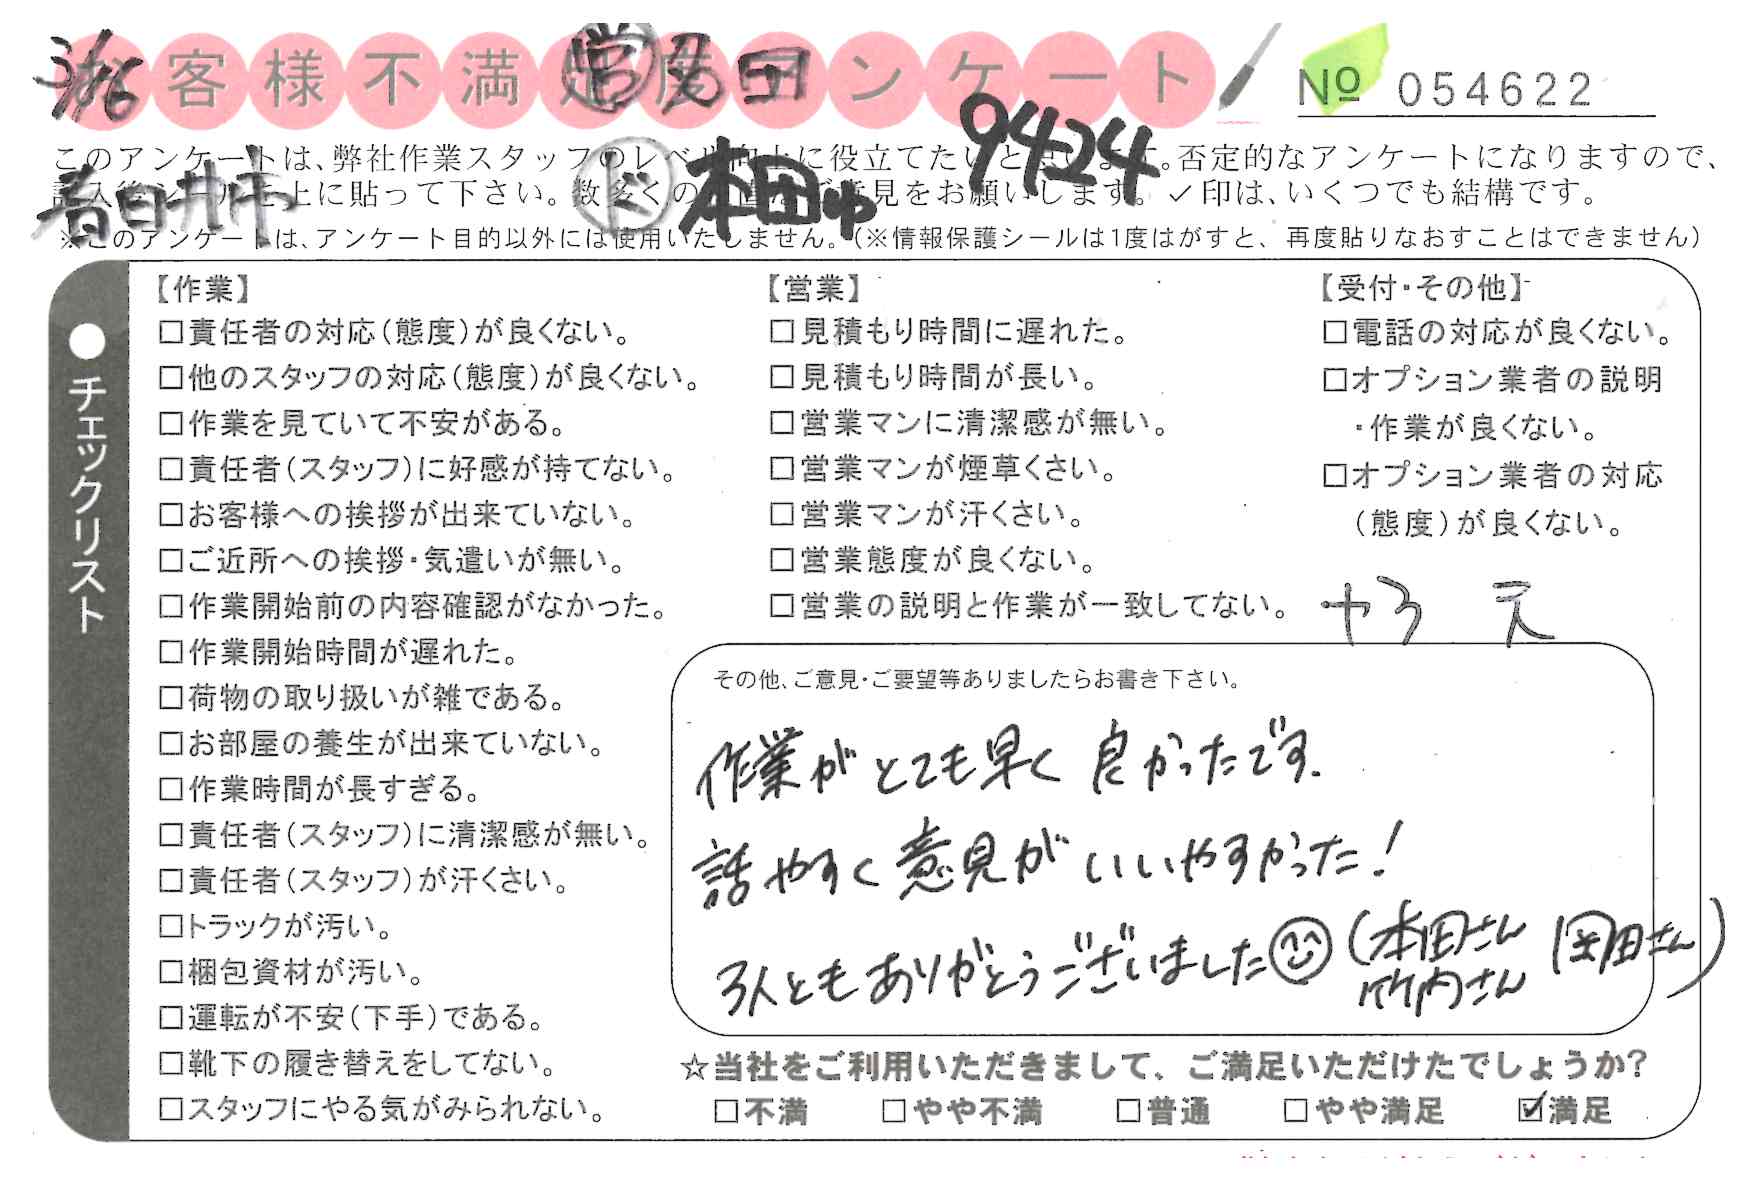 お客様不満足度アンケート
3/16
営 多田
№ 054622
9424
このアンケートは、弊社作業スタッフのレベル向上に役立てたいと思います。否定的なアンケートになりますので、
記入後シールを上に貼って下さい。数多くのご意見をお願いします。✓印は、いくつでも結構です。
春日井市
ド 本田ゆ
※このアンケートは、アンケート目的以外には使用いたしません。(※情報保護シールは1度はがすと、再度貼りなおすことはできません)
●チェックリスト
【作業】
□責任者の対応(態度)が良くない。
□他のスタッフの対応(態度)が良くない。
□作業を見ていて不安がある。
□責任者(スタッフ)に好感が持てない。
□お客様への挨拶が出来ていない。
□ご近所への挨拶・気遣いが無い。
□作業開始前の内容確認がなかった。
□作業開始時間が遅れた。
□荷物の取り扱いが雑である。
□お部屋の養生が出来ていない。
□作業時間が長すぎる。
□責任者(スタッフ)に清潔感が無い。
□責任者(スタッフ)が汗くさい。
□トラックが汚い。
□梱包資材が汚い。
□運転が不安(下手)である。
□靴下の履き替えをしてない。
□スタッフにやる気がみられない。
【営業】
□見積もり時間に遅れた。
□見積もり時間が長い。
□営業マンに清潔感が無い。
□営業マンが煙草くさい。
□営業マンが汗くさい。
□営業態度が良くない。
□営業の説明と作業が一致してない。
【受付・その他】
□電話の対応が良くない。
□オプション業者の説明
・作業が良くない。
□オプション業者の対応
(態度)が良くない。
その他、ご意見・ご要望等ありましたらお書き下さい。
作業がとても早く良かったです.
話やすく意見がいいやすかった!
3人ともありがとうございました(本田さん 岡田さん)
竹内さん
☆当社をご利用いただきまして、ご満足いただけたでしょうか?
□不満 □やや不満 □普通 □やや満足 ☑満足